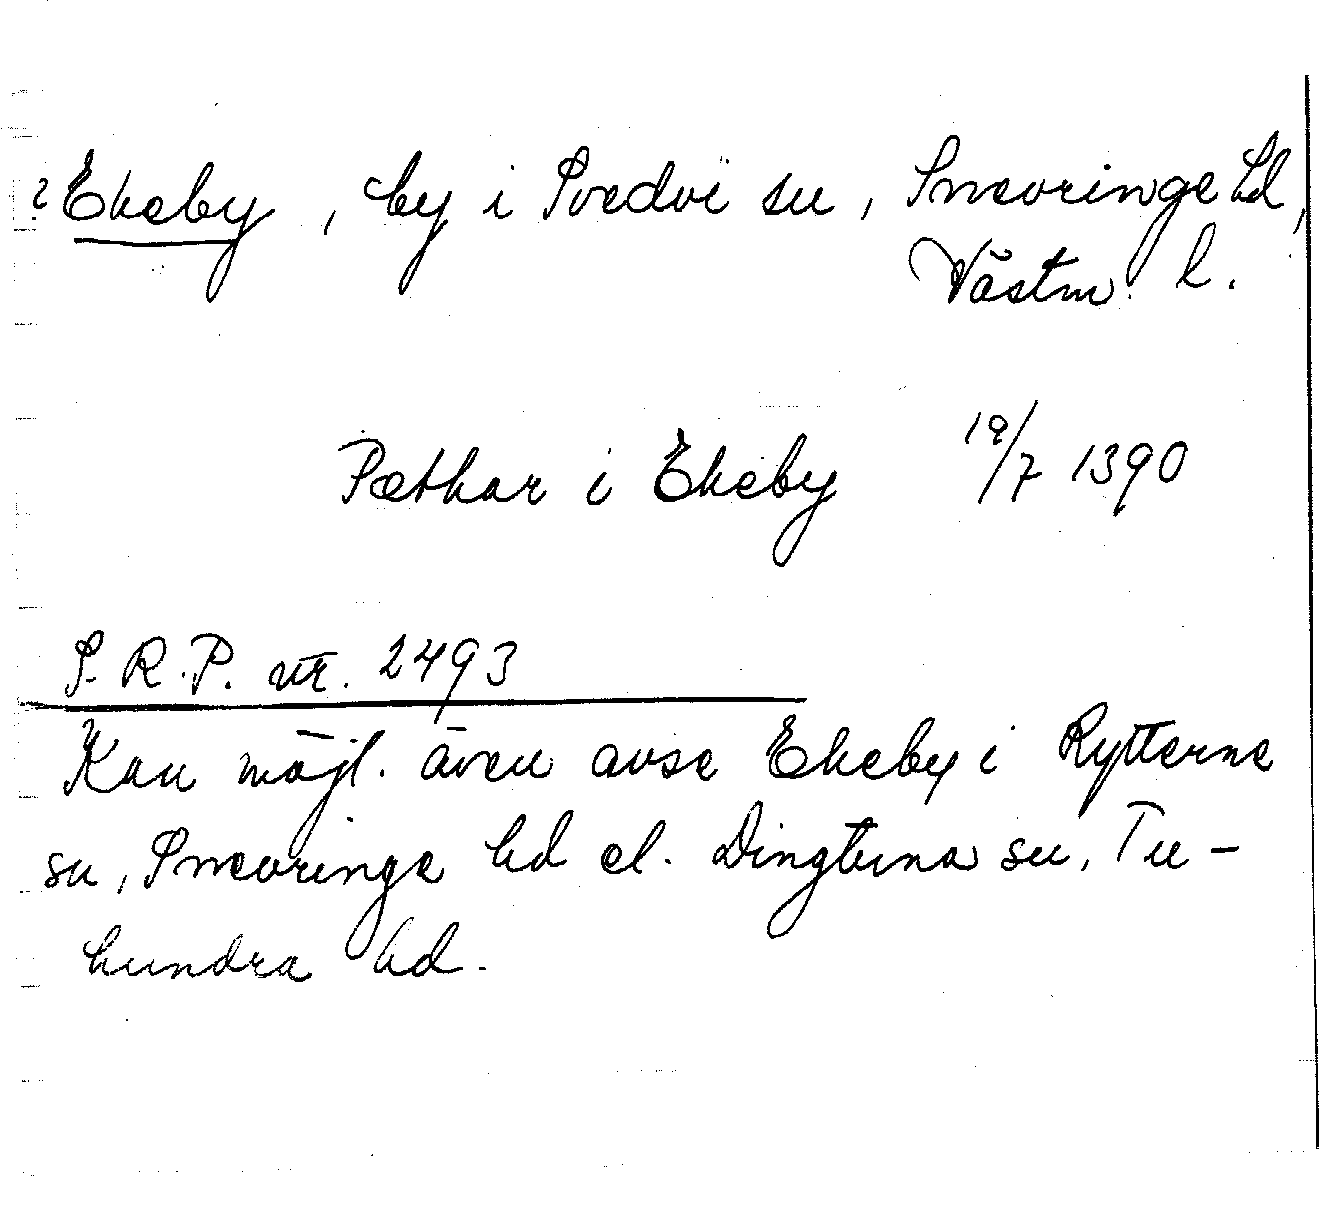 ? Ekeby, by i Svedvi sn, Snevringe hd,
Västm. l.
Pæthar i Ekeby 19/7 1390
S.R.P. nr. 2493
Kan möjl. även avse Ekeby i Rytterne
sn, Snevringe hd el. Dingtuna sn, Tu-
hundra hd.